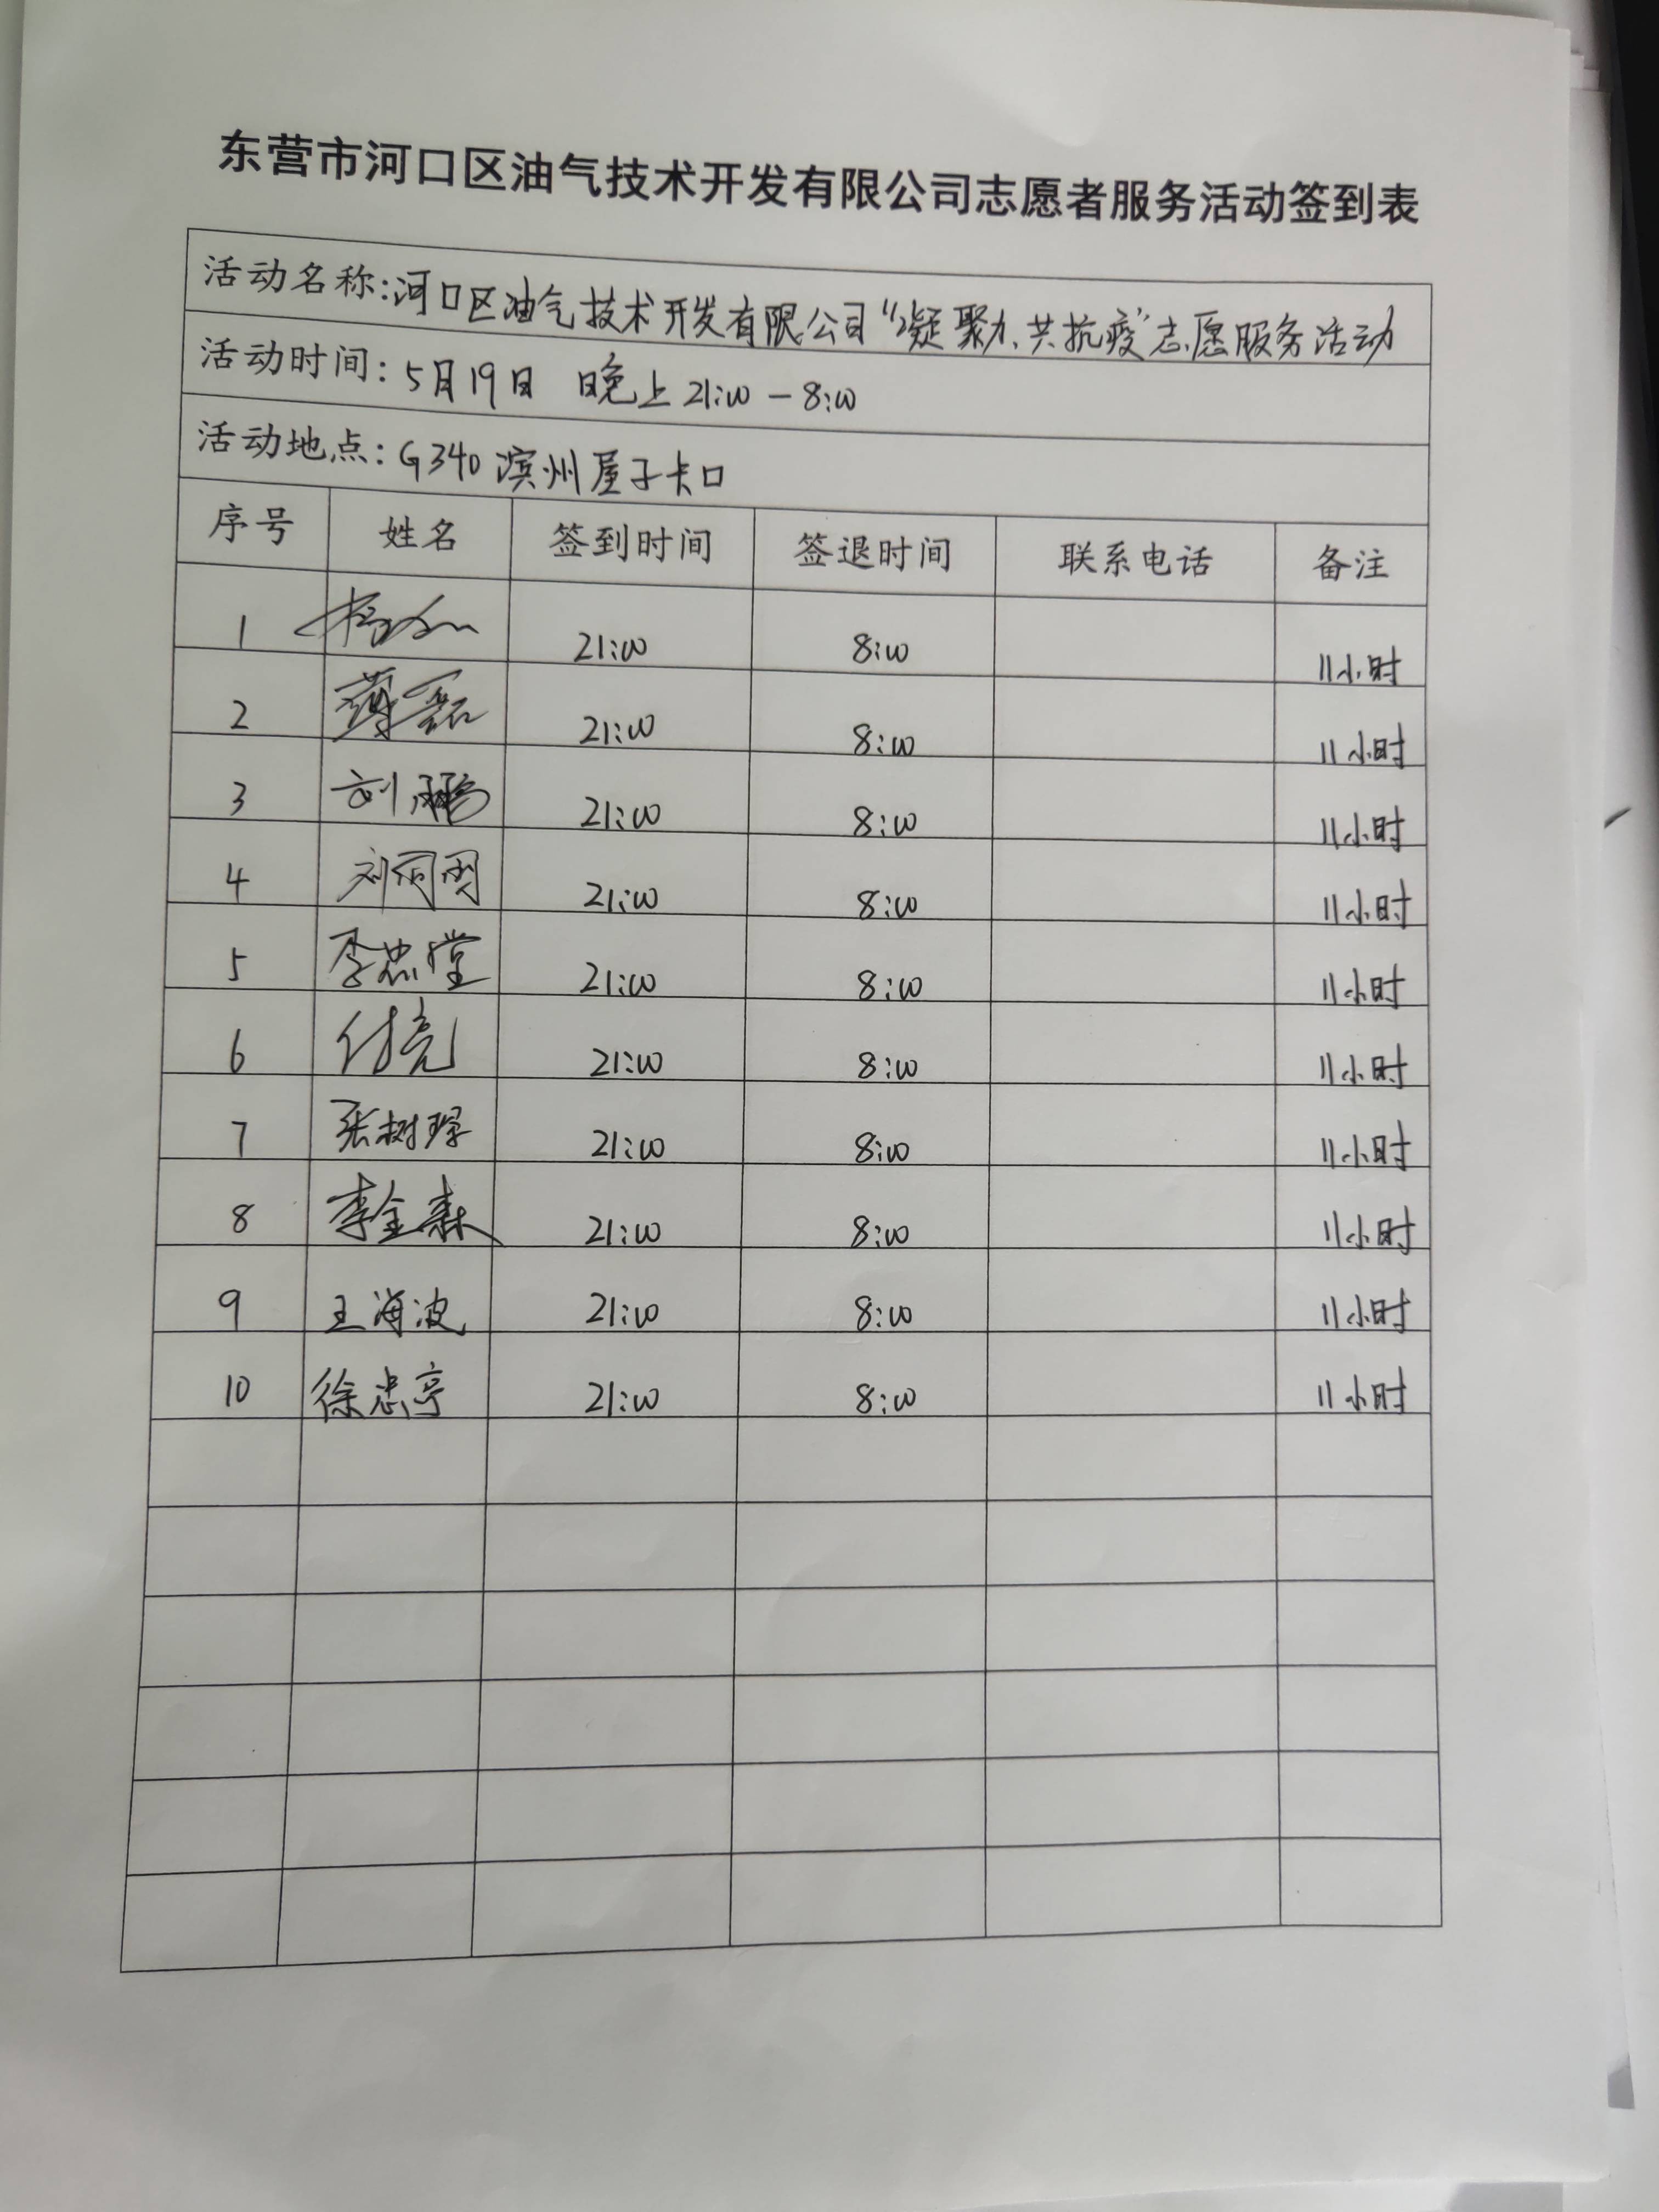 东营市河口区油气技术开发有限公司志愿者服务活动签到表
活动名称:河口区油气技术开发有限公司“凝聚力、共抗疫”志愿服务活动
活动时间: 5月19日 晚上 21:00 - 8:00
活动地点: G340 滨州屋子卡口
序号 姓名 签到时间 签退时间 联系电话 备注
1 21:00 8:00 11小时
2 薄磊 21:00 8:00 11小时
3 刘鹏 21:00 8:00 11小时
4 刘同周 21:00 8:00 11小时
5 李忠堂 21:00 8:00 11小时
6 付亮 21:00 8:00 11小时
7 张树 21:00 8:00 11小时
8 李金森 21:00 8:00 11小时
9 王海波 21:00 8:00 11小时
10 徐忠亭 21:00 8:00 11小时